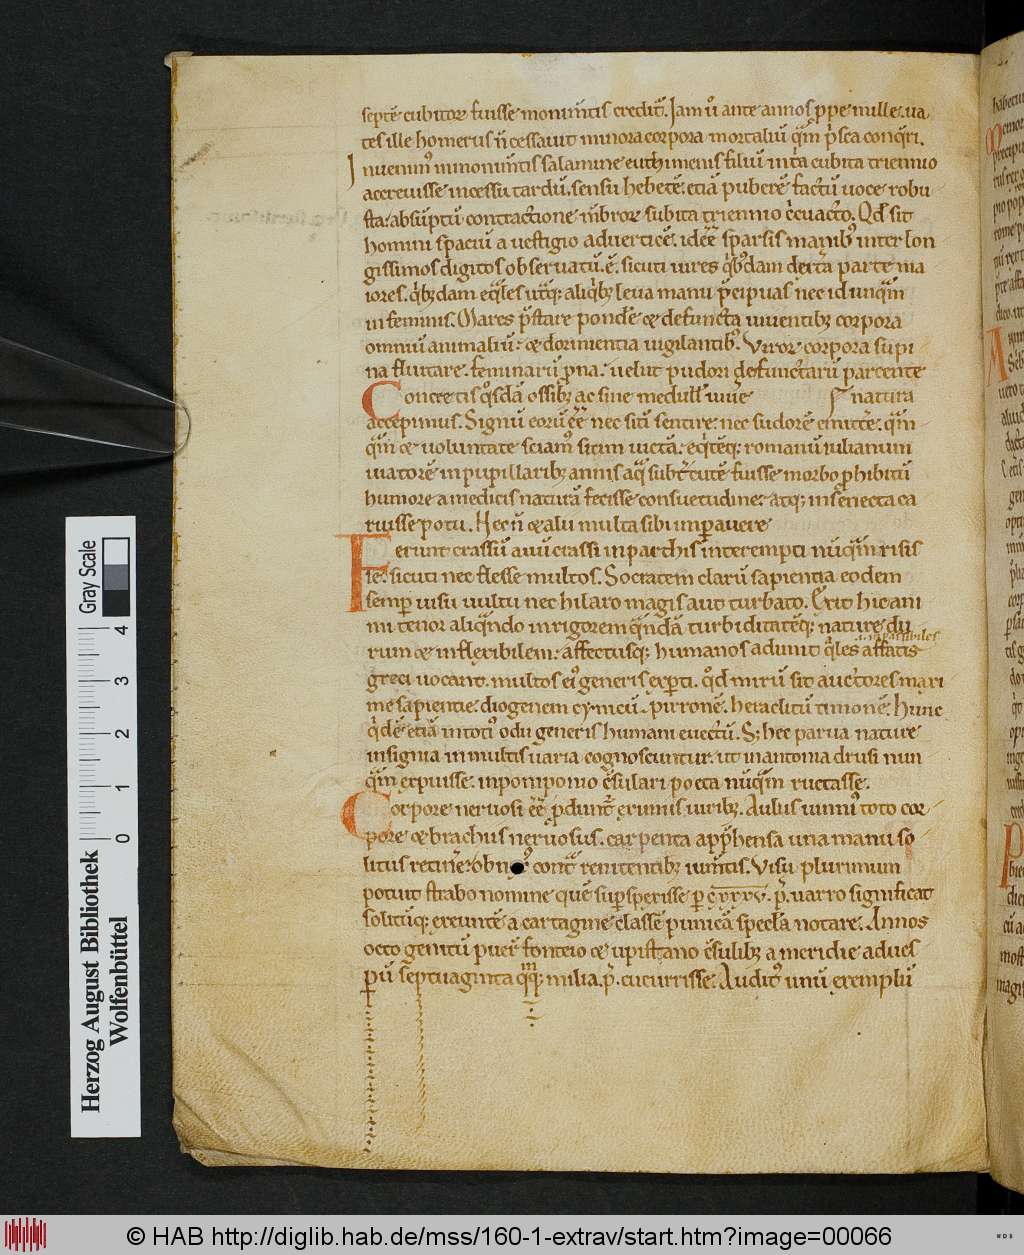 septē cubitorᷓ fuisse monimtis credit̄. Iam ů ante annos ꝓpe mille. ua
tes ille homerus n̄ cessauit minora corpora mortaliū qᷓm p̄sca conq̄ri.
Inuenim᷒ in monum̄tis salamine euthimenis filiū in tria cubita triennio
accreuisse incessu tardū. sensu hebetē. etiā puberē factū uoce robu
sta. absūptū contractione m̄brorᷓ subita triennio c̄cuacto. Qd̄ sit
homini spaciū a uestigio ad uerticē. id eē sparsis manib᷒ inter lon
gissimos digitos obseruatū. ē. sicuti uires qͥb᷒dam dext̄a parte ma
iores. qͥbꝫdam eq̄les utqͥ; aliqͥbꝫ leua manu p̄cipuas nec id unqᷓm
in feminis. Mares p̄stare pondē ꝛ defuncta uiuentibꝫ corpora
omniū animaliū. ꝛ dormientia uigilantib᷒. Virorᷓ corpora supi
na fluitare. feminarū ꝓna. uelut pudori defunctarū parcente
Concretis qͦsdā ossibꝫ ac sine medull᷒ uiu̾e natura
accepimus. Signū eorū ēē nec sitī sentire. nec sudorē emitte̅. qᷓm
qᷓm ꝛ uoluntate sciam᷒ sitim uictā. eqͥtēqꝫ romanū iulianum
uiatorē in pupillaribꝫ annis aqᷓ subt̄ cutē fuisse morbo ꝓhibitū
humore a medicis naturā fecisse consuetudine. atqꝫ in senecta ca
ruisse potu. Hec n̄ ꝛ alii multa sibi impauere
Ferunt crassū auū crassi in parthis interempti nūqᷓm risis
se. sicuti nec flesse multos. Socratem clarū sapientia eodem
semp̱ uisu uultu nec hilaro magis aut turbato. Exit hic ani
mi tenor aliqᷓndo in rigorem qᷓndā turbiditatēqꝫ nature du
rum ꝛ inflexibilem. affectusqꝫ humanos adimit qᷓles affatis
greci uocant. multos ei᷒ generis exp̱ti. qd̄ mirū sit auctores maxi
me sapientie. diogenem cynicū. pirronē. heraclitū timonē. hunc
qͥdē etiā in totī odii generis humani euectū. Sꝫ hec parua nature
insignia in multis uaria cognoscuntur. ut in antonia drusi nun
qᷓm expuisse. in pomponio c̄sulari poeta nūqᷓm ructasse.
Corpore neruosi ēē ꝓdunt᷑ eximiis uiribꝫ. Aulus iunni᷒ toto cor
pore ꝛ brachiis neruosus. carpenta app̄hensa una manu so
litus retin̄e. cont̄ renitentibꝫ ium̄tis. Visu plurimum
potuit strabo nomine quē sup̱spexisse p̱ cxxxv. p̄. uarro significat
solitūqꝫ exeuntē a cartagine classē punicā specl̄a notare. Annos
octo genitū puer̄ fonteio ꝛ uipstano c̄sulibꝫ a meridie ad ues
p̱ū septuaginta qͥqꝫ milia. p̄. cucurrisse. Audit᷒ unū exemplū
Herzog August Bibliothek
Wolfenbüttel
Gray Scale
0 1 2 3 4
© HAB http://diglib.hab.de/mss/160-1-extrav/start.htm?image=00066